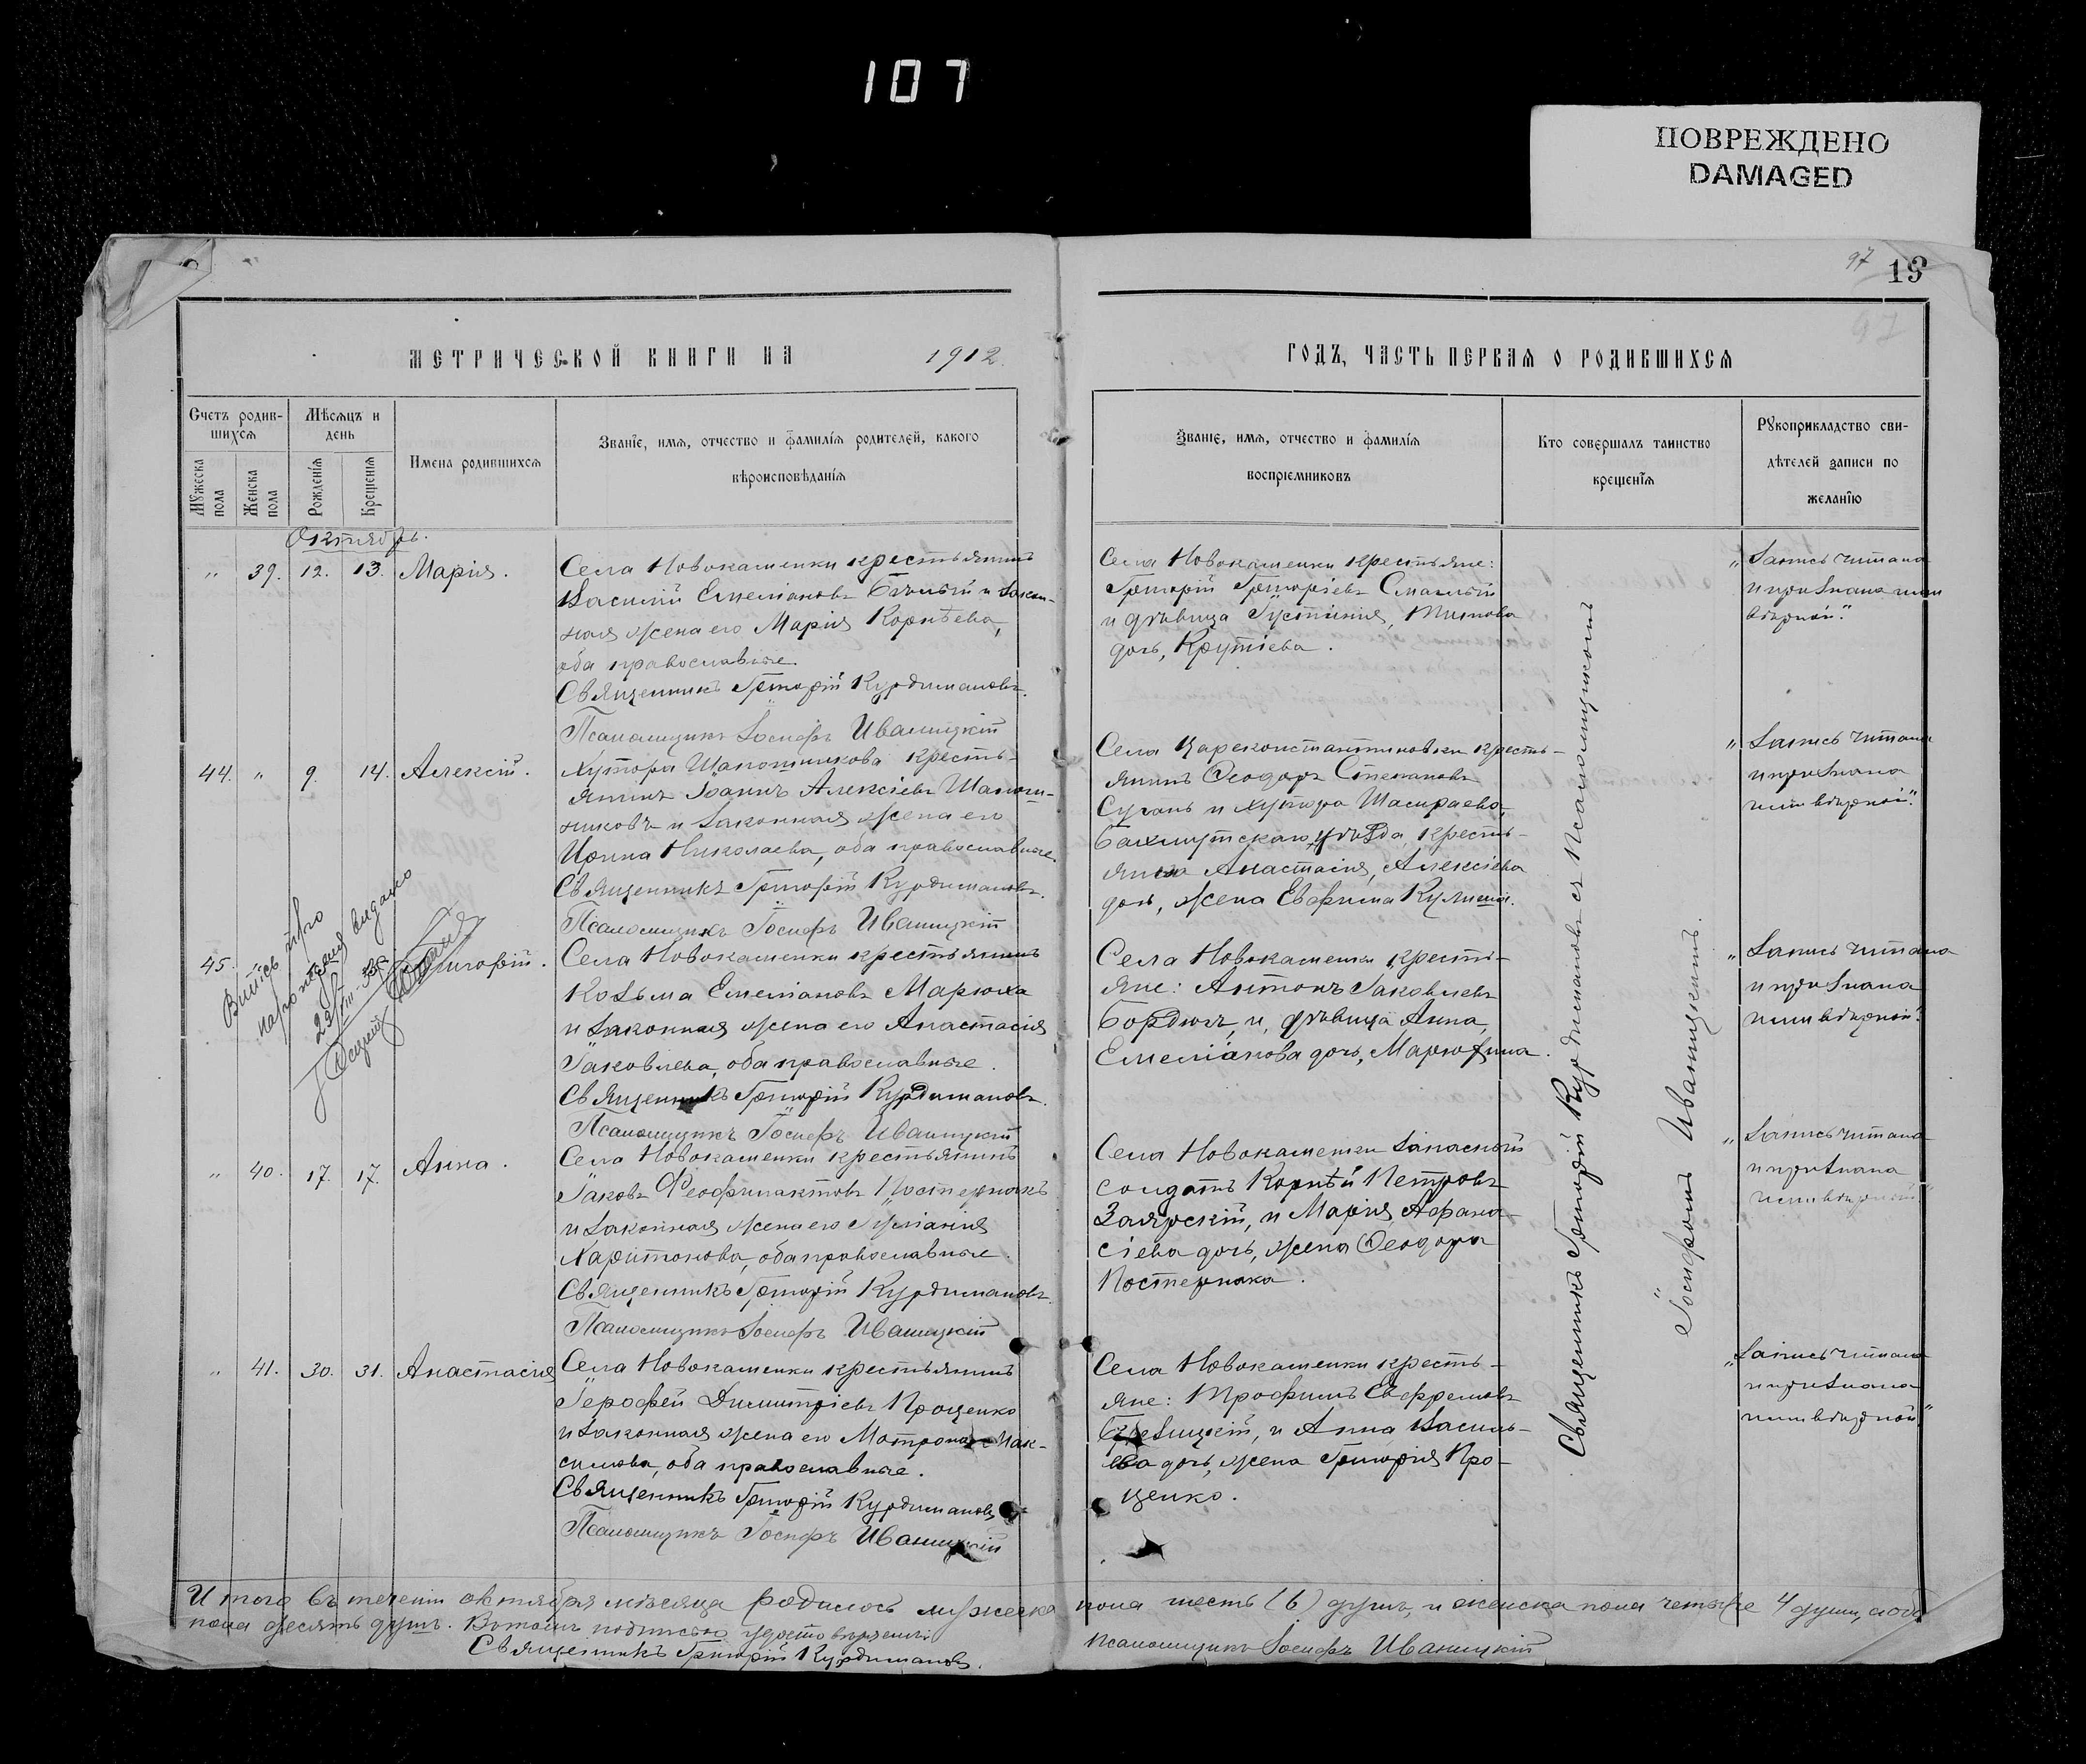 107
ПОВРЕЖДЕНО
DAMAGED
97
19
97
МЕТРИЧЕСКОЙ КНИГИ НА 1912 ГОДЪ, ЧАСТЬ ПЕРВАЯ О РОДИВШИХСЯ
Счетъ родив-
шихся
Мужеска пола
Женска пола
Мѣсяцъ и день
Рожденія
Крещенія
Имена родившихся
Званіе, имя, отчество и фамилія родителей, какого
вѣроисповѣданія
Званіе, имя, отчество и фамилія
воспріемниковъ
Кто совершалъ таинство
крещенія
Рукоприкладство сви-
дѣтелей записи по
желанію
Октябрь.
" 39. 12. 13. Марія.
Села Новокаменки крестьянинъ
Василій Емеліановъ и закон-
ная жена его Марія Корнѣева,
оба православные.
Священникъ Григорій Курдимановъ.
Псаломщикъ Іосифъ Иваницкій
Села Новокаменки крестьяне:
Григорій Григоріевъ Смаглій
и дѣвица Іустинія, Титова
дочь, Крутіева.
"Запись читана
и признана
вѣрной."
44. " 9. 14. Алексій.
Хутора Шапошникова кресть-
янинъ Іоаннъ Алексіевъ Шапош-
никовъ и законная жена его
Ирина Николаева, оба православные.
Священникъ Григорій Курдимановъ.
Псаломщикъ Іосифъ Иваницкій
Села Цареконстантиновки кресть-
янинъ Ѳеодоръ Стефановъ
и хутора
Бахмутскаго уѣзда, кресть-
янка Анастасія, Алексіева
дочь, жена Евфима
"Запись читана
и признана
вѣрной."
45. Григорій.
Витяг про
народження видано
Села Новокаменки крестьянинъ
Козьма Емеліановъ Марюха
и законная жена его Анастасія
Іаковлева, оба православные.
Священникъ Григорій Курдимановъ.
Псаломщикъ Іосифъ Иваницкій
Села Новокаменки кресть-
яне: Антонъ Іаковлевъ
и, дѣвица Анна,
Емеліанова дочь, Марюхина.
"Запись читана
и признана
вѣрной."
" 40. 17. 17. Анна.
Села Новокаменки крестьянинъ
Іаковъ Феофилактовъ Постернакъ
и законная жена его Іуліанія
Харитонова, оба православные.
Священникъ Григорій Курдимановъ.
Псаломщикъ Іосифъ Иваницкій
Села Новокаменки запасный
солдатъ Корнѣй Петровъ
Заярскій, и Марія, Афана-
сіева дочь, жена Ѳеодора
Постернака.
"Запись читана
и признана
вѣрной"
" 41. 30. 31. Анастасія
Села Новокаменки крестьянинъ
Іерофей Димитріевъ Проценко
и законная жена его Матрона Мак-
симова, оба православные.
Священникъ Григорій Курдимановъ
Псаломщикъ Іосифъ Иваницкій
Села Новокаменки кресть-
яне: Трофимъ Евфремовъ
и Анна Василь-
ева дочь, жена Григорія Про-
ценко.
"Запись читана
и признана
вѣрной"
Священникъ Григорій Курдимановъ съ Псаломщикомъ
Іосифомъ Иваницкимъ.
Итого въ теченіи октября мѣсяца родилось мужеска пола шесть (6) душъ, и женска пола четыре 4 души, обо-
пола десять душъ. Въ томъ подписью удостовѣряемъ:
Священникъ Григорій Курдимановъ.
Псаломщикъ Іосифъ Иваницкій